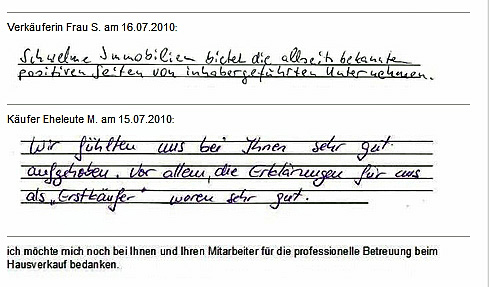 Verkäuferin Frau S. am 16.07.2010:
Schwelme Immobilien bietet die allseits bekannten
positiven Seiten von inhabergeführten Unternehmen.
Käufer Eheleute M. am 15.07.2010:
Wir fühlten uns bei Ihnen sehr gut
aufgehoben. Vor allem, die Erklärungen für uns
als „Erstkäufer" waren sehr gut.
ich möchte mich noch bei Ihnen und Ihren Mitarbeiter für die professionelle Betreuung beim
Hausverkauf bedanken.